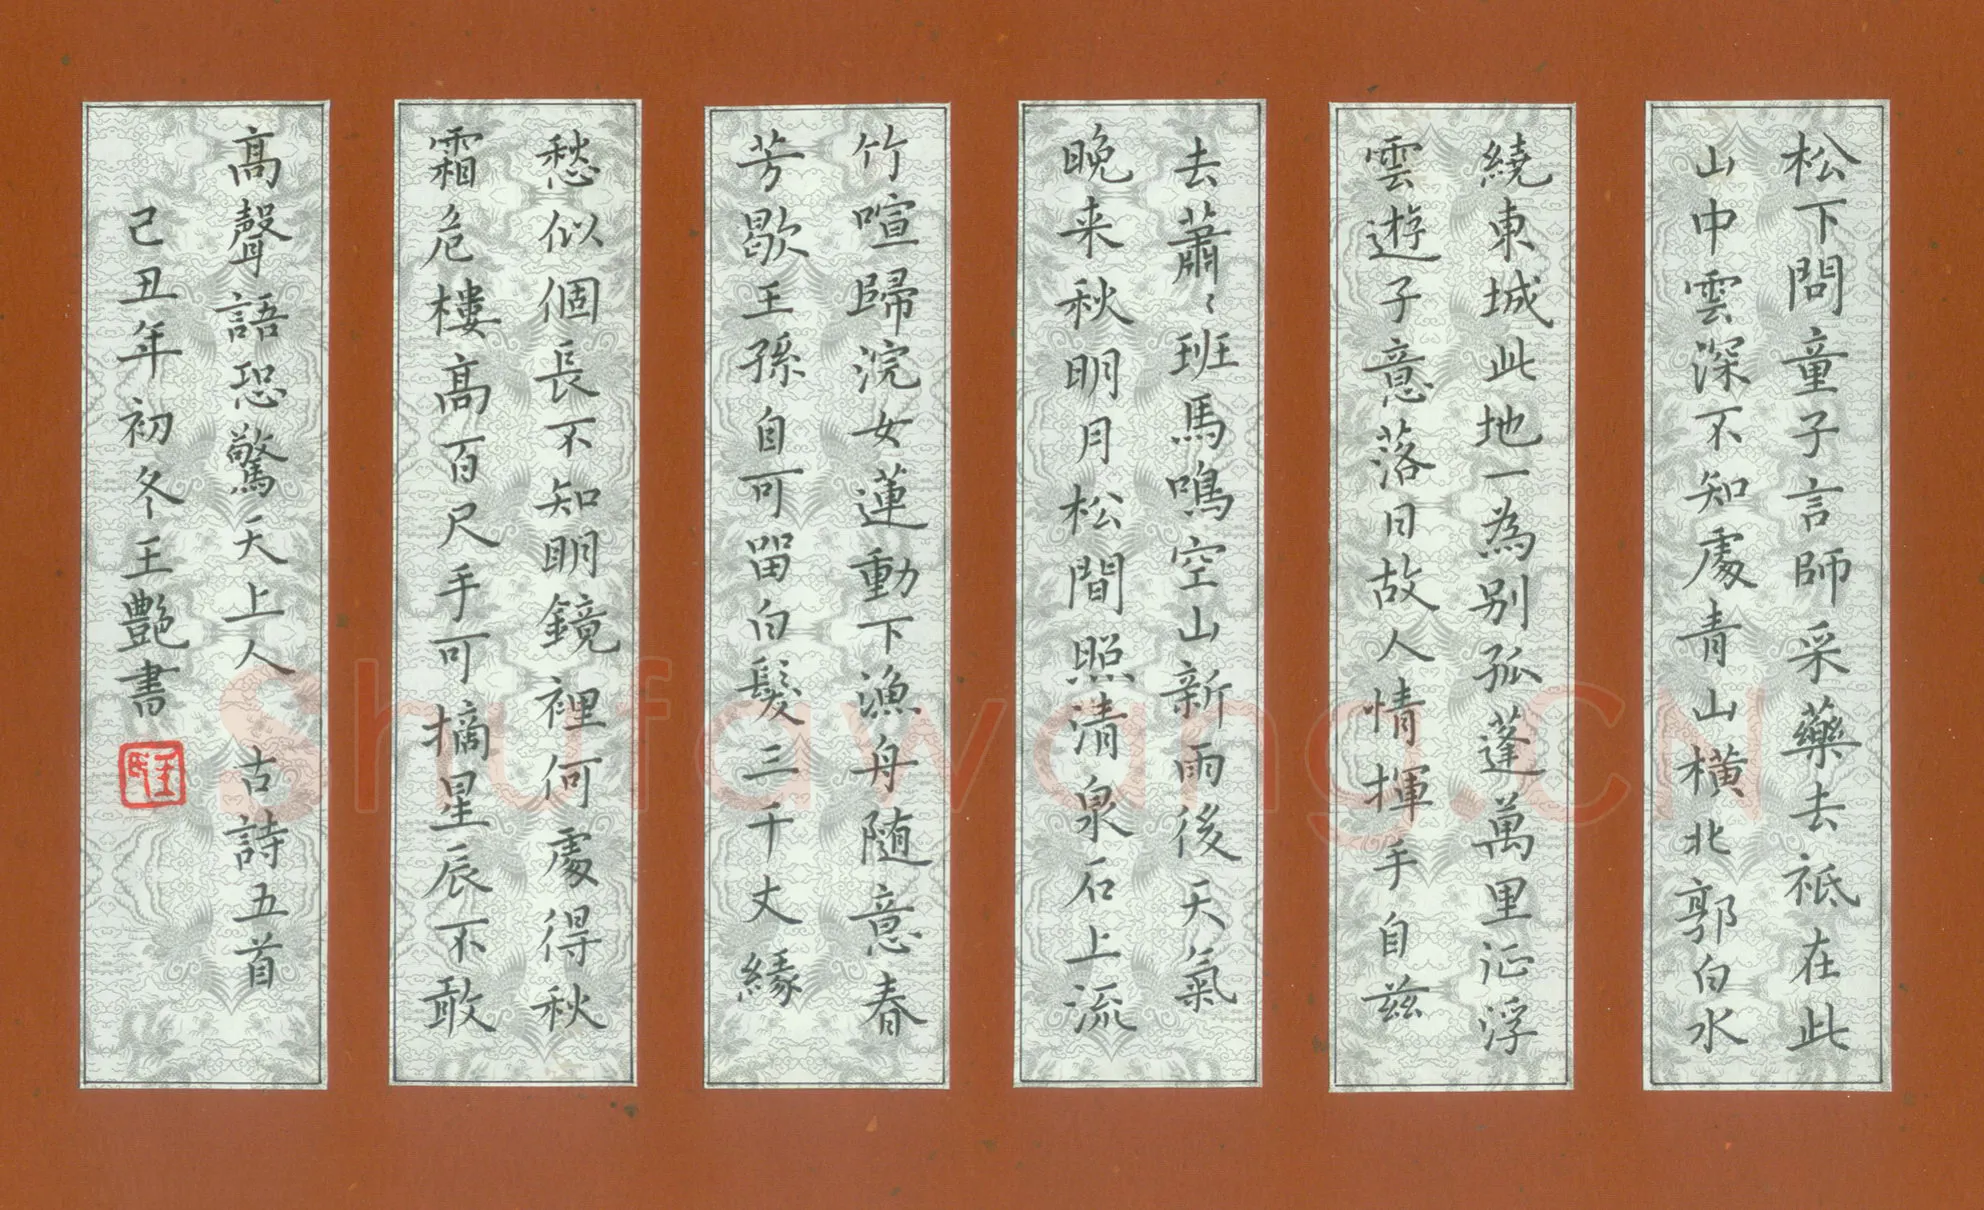 松下問童子言師采藥去祗在此
山中雲深不知處青山橫北郭白水
繞東城此地一為別孤蓬萬里征浮
雲遊子意落日故人情揮手自茲
去蕭〻班馬鳴空山新雨後天氣
晚来秋明月松間照清泉石上流
竹喧歸浣女蓮動下漁舟隨意春
芳歇王孫自可留白髮三千丈緣
愁似個長不知明鏡裡何處得秋
霜危樓高百尺手可摘星辰不敢
高聲語恐驚天上人 古詩五首
己丑年初冬王艷書
Shufawang.CN